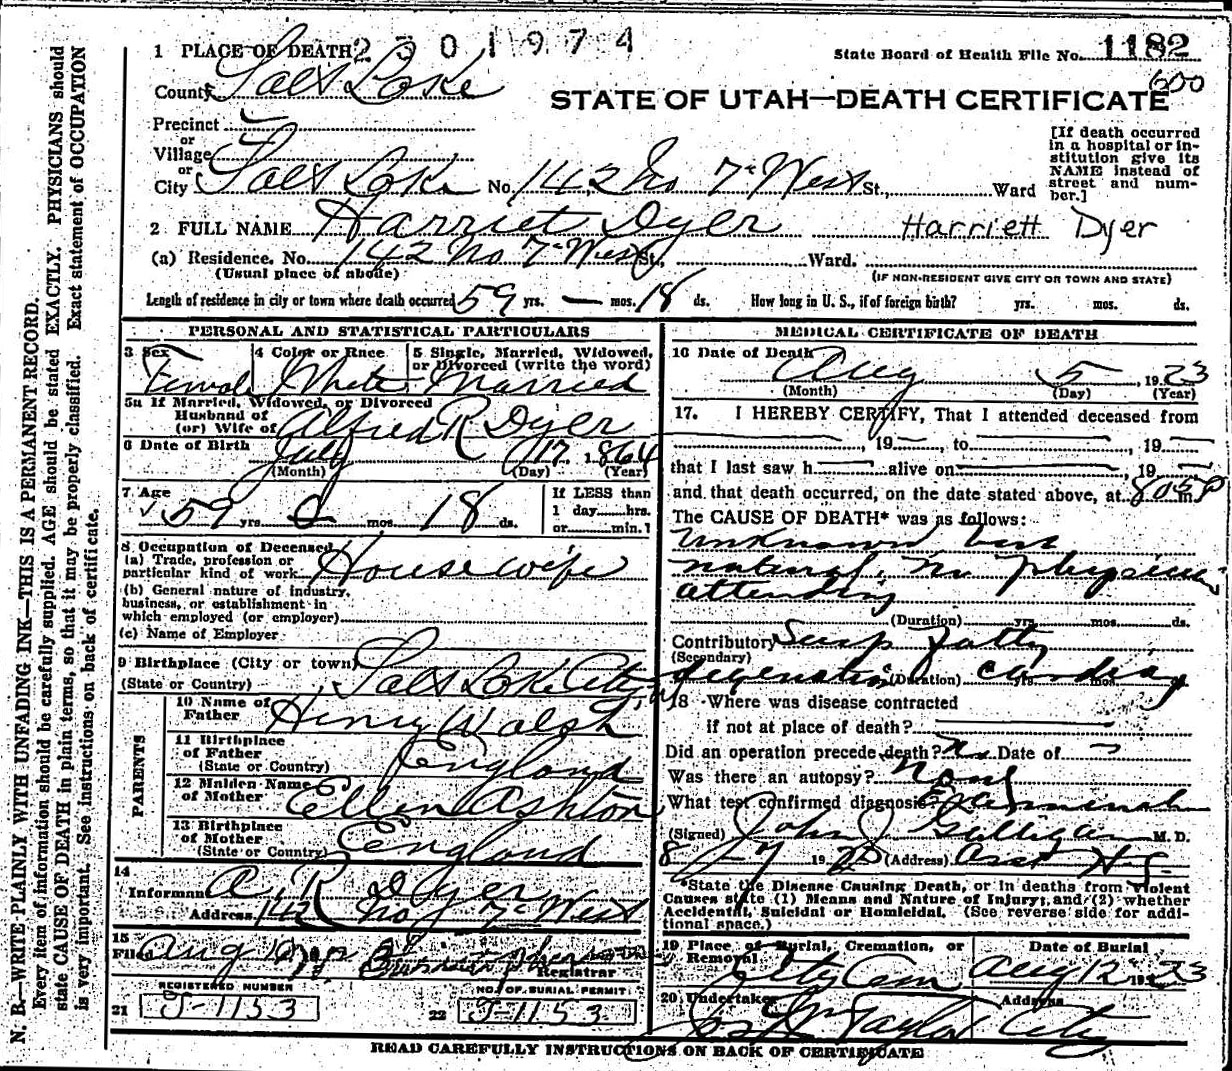 2301974
1 PLACE OF DEATH
State Board of Health File No. 1182
600
County Salt Lake
STATE OF UTAH—DEATH CERTIFICATE
Precinct
or
Village
or
City Salt Lake No. 142 No 7th West St., Ward
[If death occurred
in a hospital or in-
stitution give its
NAME instead of
street and num-
ber.]
2 FULL NAME Harriet Dyer Harriett Dyer
(a) Residence. No. 142 No 7th West St., Ward.
(Usual place of abode) (IF NON-RESIDENT GIVE CITY OR TOWN AND STATE)
Length of residence in city or town where death occurred 59 yrs. — mos. 18 ds. How long in U. S., if of foreign birth? yrs. mos. ds.
PERSONAL AND STATISTICAL PARTICULARS
3 Sex 4 Color or Race 5 Single, Married, Widowed,
or Divorced (write the word)
Female White Married
5a If Married, Widowed, or Divorced
Husband of
(or) Wife of Alfred R Dyer
6 Date of Birth July 17 1864
(Month) (Day) (Year)
7 Age 59 yrs. 0 mos. 18 ds.
If LESS than
1 day hrs.
or min.?
8 Occupation of Deceased
(a) Trade, profession or
particular kind of work Housewife
(b) General nature of industry,
business, or establishment in
which employed (or employer)
(c) Name of Employer
9 Birthplace (City or town) Salt Lake City
(State or Country)
PARENTS
10 Name of
Father Henry Walsh
11 Birthplace
of Father
(State or Country) England
12 Maiden Name
of Mother Ellen Ashton
13 Birthplace
of Mother
(State or Country) England
14
Informant A. R. Dyer
Address 142 No 7th West
15
Filed Aug
Registrar
REGISTERED NUMBER
21 J-1153
NO. OF BURIAL PERMIT
22 J-1153
MEDICAL CERTIFICATE OF DEATH
16 Date of Death Aug 5, 1923
(Month) (Day) (Year)
17. I HEREBY CERTIFY, That I attended deceased from
, 19 —, to , 19 —
that I last saw h alive on , 19 —
and that death occurred, on the date stated above, at 8:05 P m
The CAUSE OF DEATH* was as follows:
Unknown but
natural, no physician
attending
(Duration) yrs. mos. ds.
Contributory Susp fatty
(Secondary)
degeneration (Duration) yrs. mos.
18 Where was disease contracted
if not at place of death?
Did an operation precede death? No Date of —
Was there an autopsy? None
What test confirmed diagnosis?
(Signed) John J Galligan M. D.
8-7 1923 (Address) Asst
*State the Disease Causing Death, or in deaths from Violent
Causes state (1) Means and Nature of Injury; and (2) whether
Accidental, Suicidal or Homicidal. (See reverse side for addi-
tional space.)
19 Place of Burial, Cremation, or
Removal
Date of Burial
City Cem Aug 12, 1923
20 Undertaker Address
Jos Wm Taylor City
READ CAREFULLY INSTRUCTIONS ON BACK OF CERTIFICATE
N. B.—WRITE PLAINLY WITH UNFADING INK—THIS IS A PERMANENT RECORD.
Every item of information should be carefully supplied. AGE should be stated EXACTLY. PHYSICIANS should
state CAUSE OF DEATH in plain terms, so that it may be properly classified. Exact statement of OCCUPATION
is very important. See instructions on back of certificate.